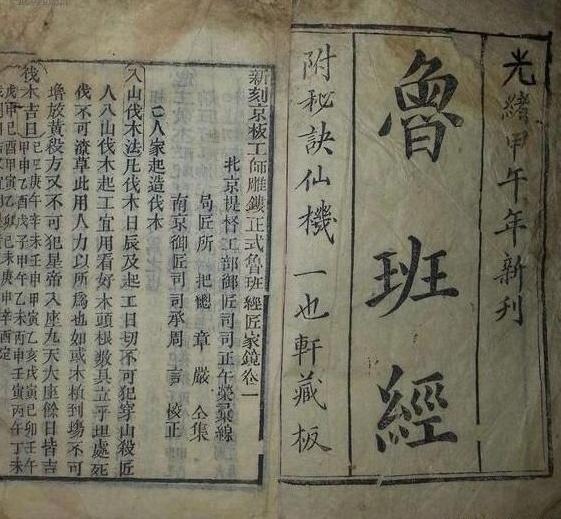 光緒甲午年新刊
魯班經
附秘訣仙機 一也軒藏板
新刻京板工師雕鏤正式魯班經匠家鏡卷一
北京提督工部御匠司司正午榮彙線
局匠所 把總 章嚴 仝集
南京御匠司司承周言校正
人家起造伐木
入山伐木法凡伐木日辰及起工日切不可犯穿山殺匠
人入山伐木起工宜用看好木頭根數具立平坦處死
伐不可潦草此用人力以所爲也如或木植到塲不可
堆放黃殺方又不可犯星帝入座九天大座餘日皆吉
伐木吉日己巳庚午辛未壬申甲寅乙亥戊寅己卯壬午
甲申乙酉戊子甲午乙未丙申壬寅丙午丁未
戊申己酉甲寅乙卯己未庚申辛酉定